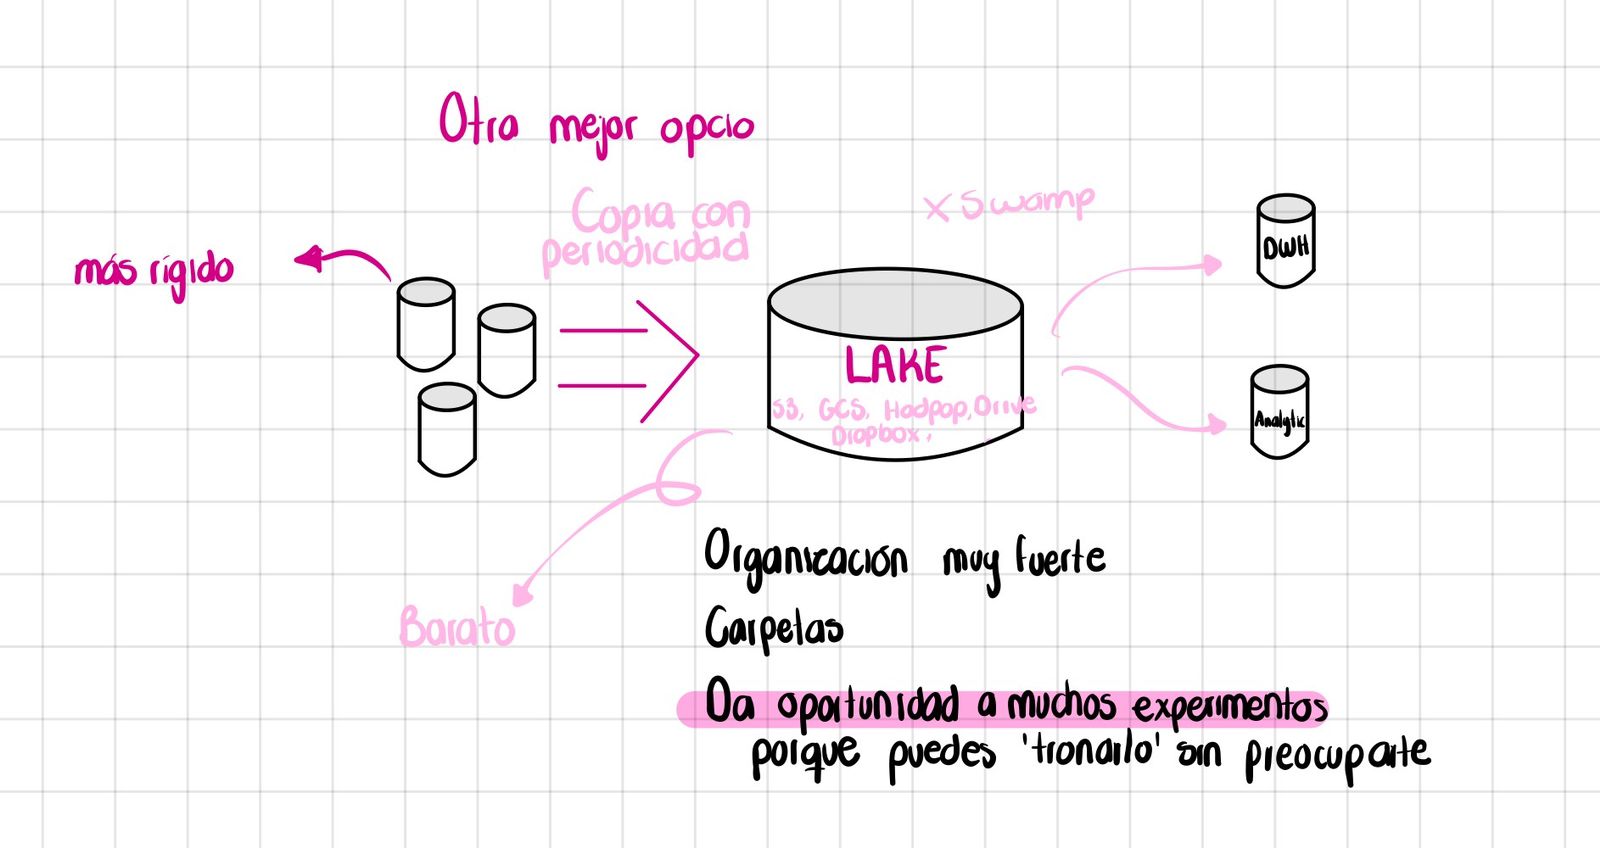 Otra mejor opcio
Copia con
periodicidad
x Swamp
más rígido
DWH
LAKE
S3, GCS, Hadpop, Drive
Dropbox,
Analytic
Organización muy fuerte
Barato
Carpetas
Da oportunidad a muchos experimentos
porque puedes 'tronarlo' sin preocuparte